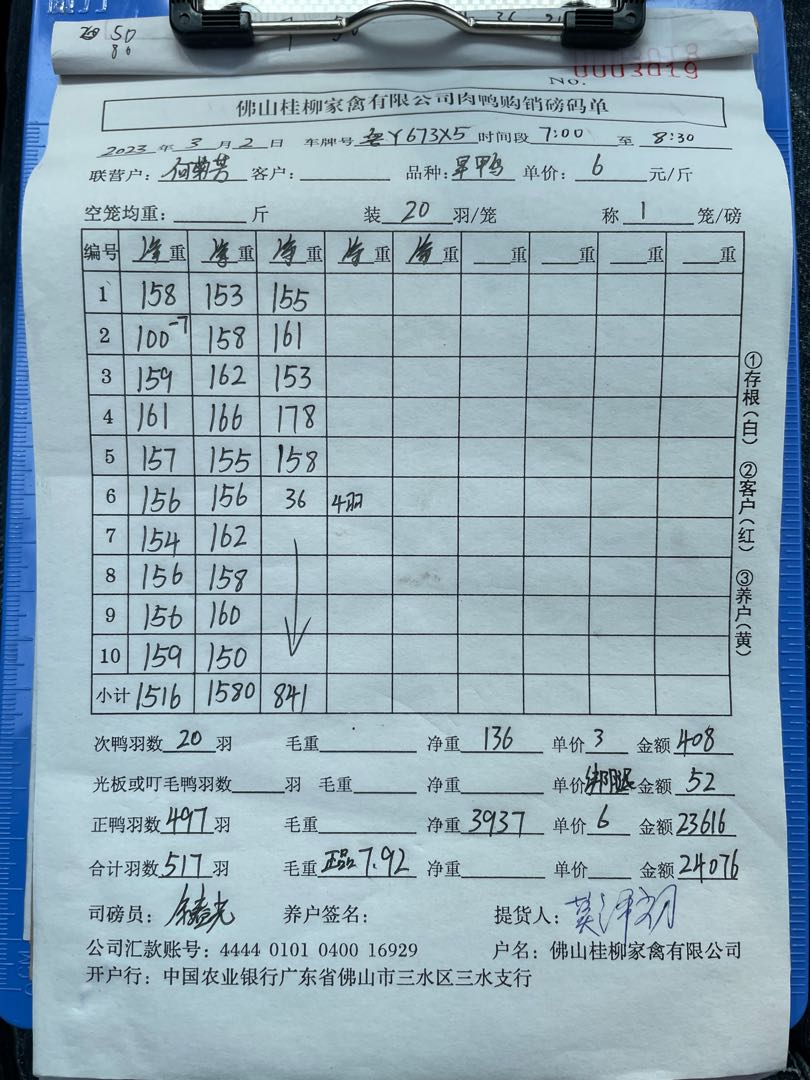 50
80
No.
0003019
佛山桂柳家禽有限公司肉鸭购销磅码单
2023年3月2日 车牌号 粤Y673X5 时间段 7:00 至 8:30
联营户：何菊芳 客户： 品种：旱鸭 单价：6 元/斤
空笼均重： 斤 装 20 羽/笼 称 1 笼/磅
编号 净重 净重 净重 净重 净重 重 重 重 重
1 158 153 155
2 100-7 158 161
3 159 162 153
4 161 166 178
5 157 155 158
6 156 156 36 4羽
7 154 162
8 156 158
9 156 160
10 159 150
小计 1516 1580 841
次鸭羽数 20 羽 毛重 净重 136 单价 3 金额 408
光板或叮毛鸭羽数 羽 毛重 净重 单价 绑腿 金额 52
正鸭羽数 497 羽 毛重 净重 3937 单价 6 金额 23616
合计羽数 517 羽 毛重 正品7.92 净重 单价 金额 24076
司磅员： 养户签名： 提货人：
公司汇款账号：4444 0101 0400 16929 户名：佛山桂柳家禽有限公司
开户行：中国农业银行广东省佛山市三水区三水支行
①存根（白） ②客户（红） ③养户（黄）